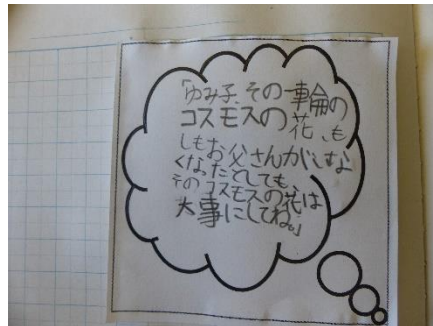 「ゆみ子、その一輪の
コスモスの花、も
しもお父さんがいな
くなったとしても、
そのコスモスの花は
大事にしてね。」